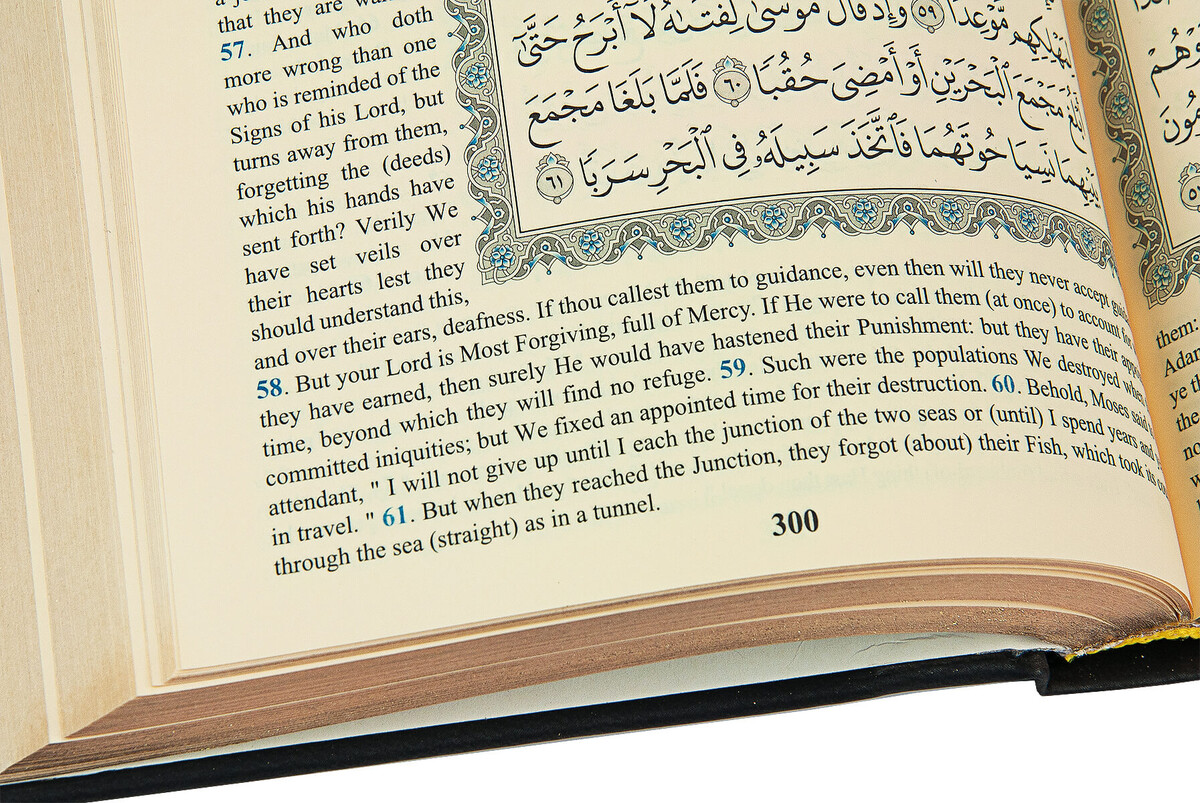 that they are
57. And who doth
more wrong than one
who is reminded of the
Signs of his Lord, but
turns away from them,
forgetting the (deeds)
which his hands have
sent forth? Verily We
have set veils over
their hearts lest they
should understand this,
مَّوْعِدًا ٥٩ وَإِذْ قَالَ مُوسَىٰ لِفَتَىٰهُ لَآ أَبْرَحُ حَتَّىٰٓ
أَبْلُغَ مَجْمَعَ ٱلْبَحْرَيْنِ أَوْ أَمْضِىَ حُقُبًا ٦٠ فَلَمَّا بَلَغَا مَجْمَعَ
بَيْنِهِمَا نَسِيَا حُوتَهُمَا فَٱتَّخَذَ سَبِيلَهُۥ فِى ٱلْبَحْرِ سَرَبًا ٦١
and over their ears, deafness. If thou callest them to guidance, even then will they never accept
58. But your Lord is Most Forgiving, full of Mercy. If He were to call them (at once) to account for
they have earned, then surely He would have hastened their Punishment: but they have their
time, beyond which they will find no refuge. 59. Such were the populations We destroyed when
committed iniquities; but We fixed an appointed time for their destruction. 60. Behold, Moses said
attendant, " I will not give up until I each the junction of the two seas or (until) I spend years and
in travel. " 61. But when they reached the Junction, they forgot (about) their Fish, which took its
through the sea (straight) as in a tunnel.
300
them.
ye